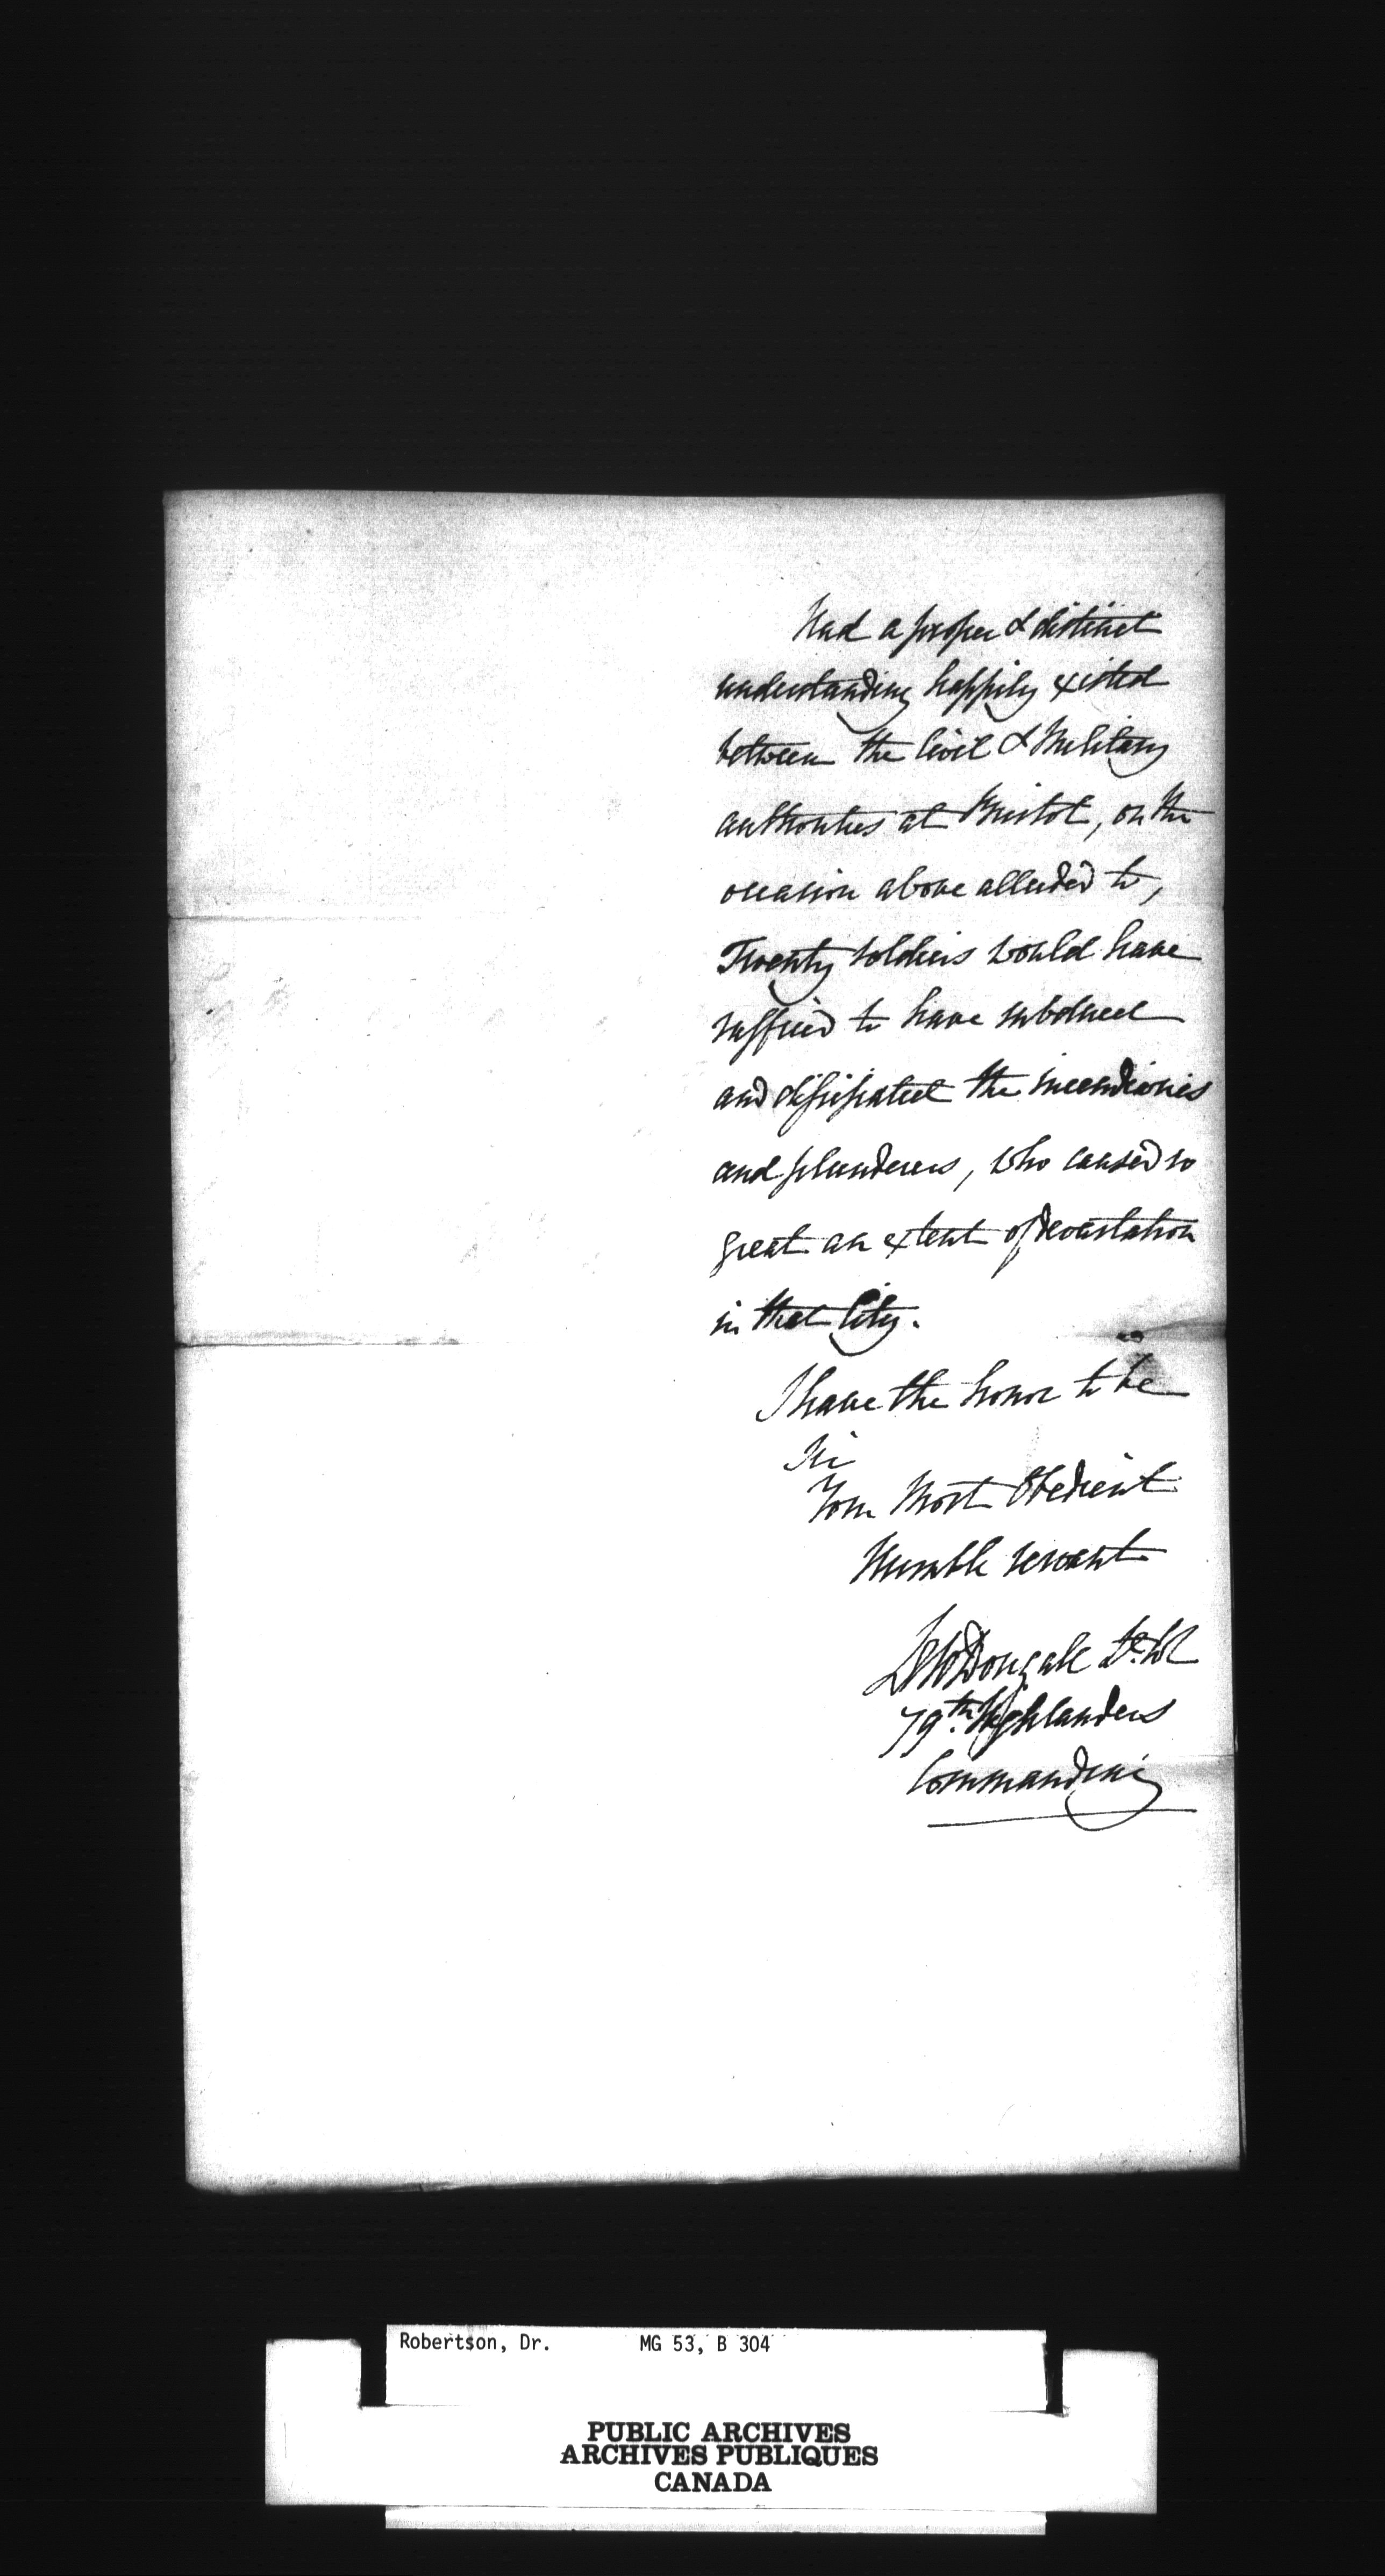 Had a proper & distinct
understanding happily existed
between the Civil & Military
authorities at Bristol, on the
occasion above alluded to,
Twenty soldiers would have
sufficed to have subdued
and dissipated the incendiaries
and plunderers, who caused so
great an extent of devastation
in that City.
I have the honor to be
Sir
Your Most Obedient
Humble servant
McDougall Lt. Col
79th Highlanders
Commanding
Robertson, Dr. MG 53, B 304
PUBLIC ARCHIVES
ARCHIVES PUBLIQUES
CANADA